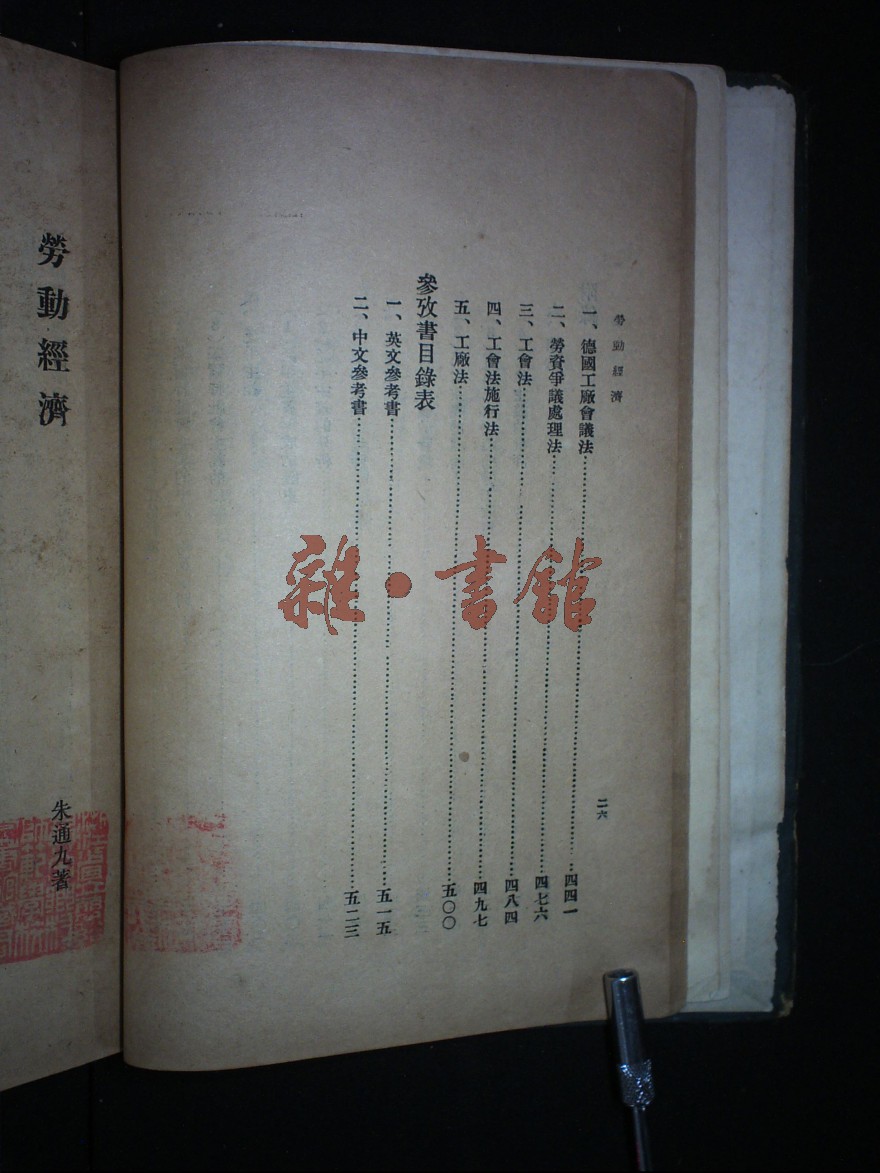 勞動經濟
二六
一、德國工廠會議法……四四一
二、勞資爭議處理法……四七六
三、工會法……四八四
四、工會法施行法……四九七
五、工廠法……五〇〇
參攷書目錄表
一、英文參考書……五一五
二、中文參考書……五二三
雜·書館
勞動經濟
朱通九著